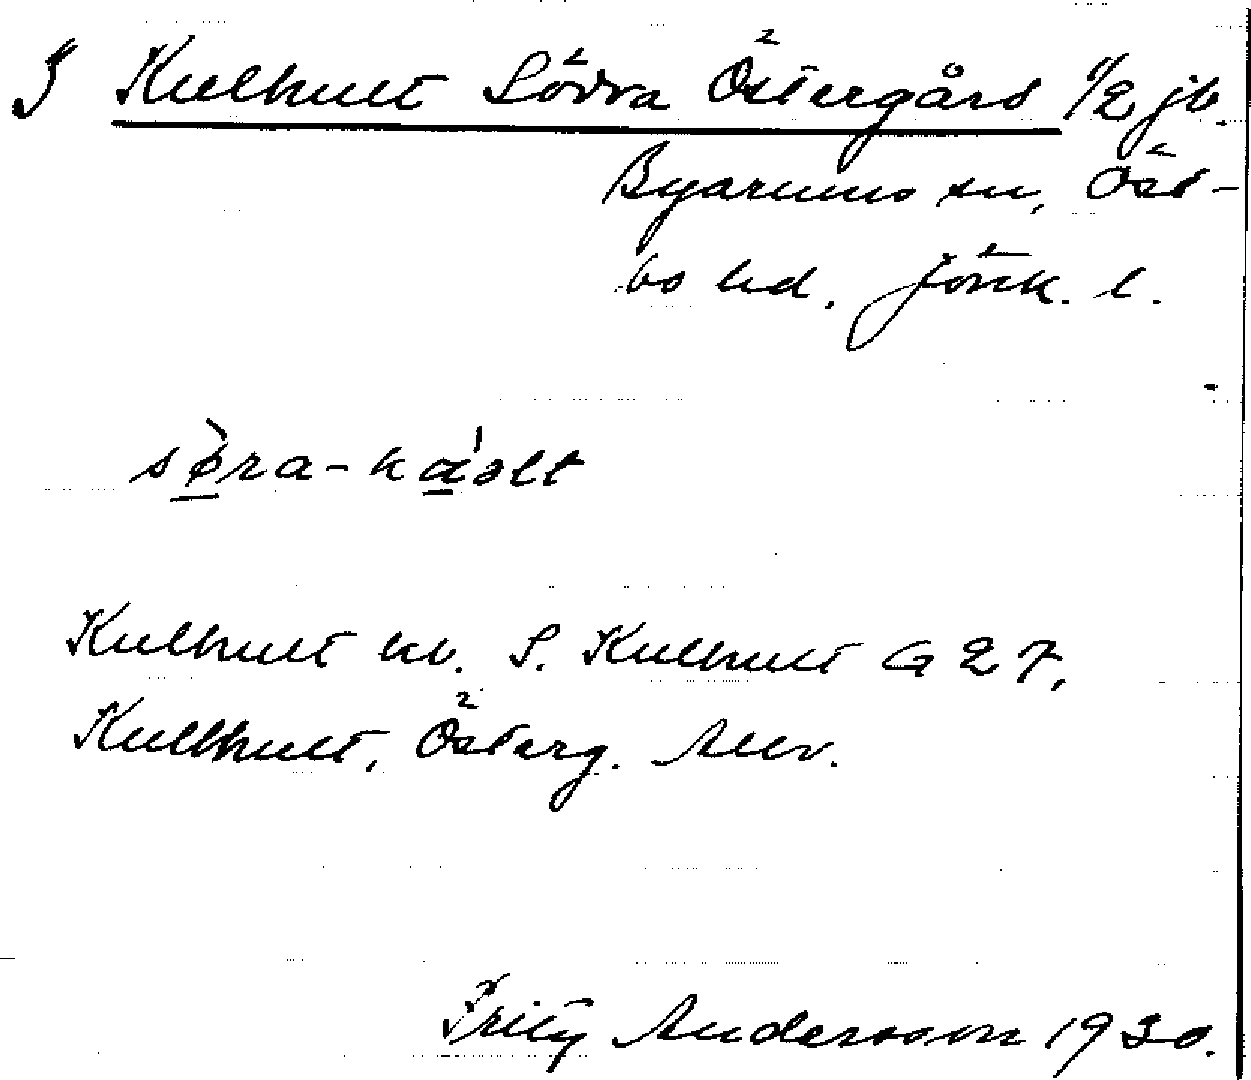 J Kulhult Södra Östergård 1/2 jb.
Byarums sn, Öst-
bo hd. Jönk. l.
sø̀ra-ká̱əlt
Kulhult kb. S. Kulhult G 27,
Kullhult, Österg. Mtv.
Fritz Andersson 1930.